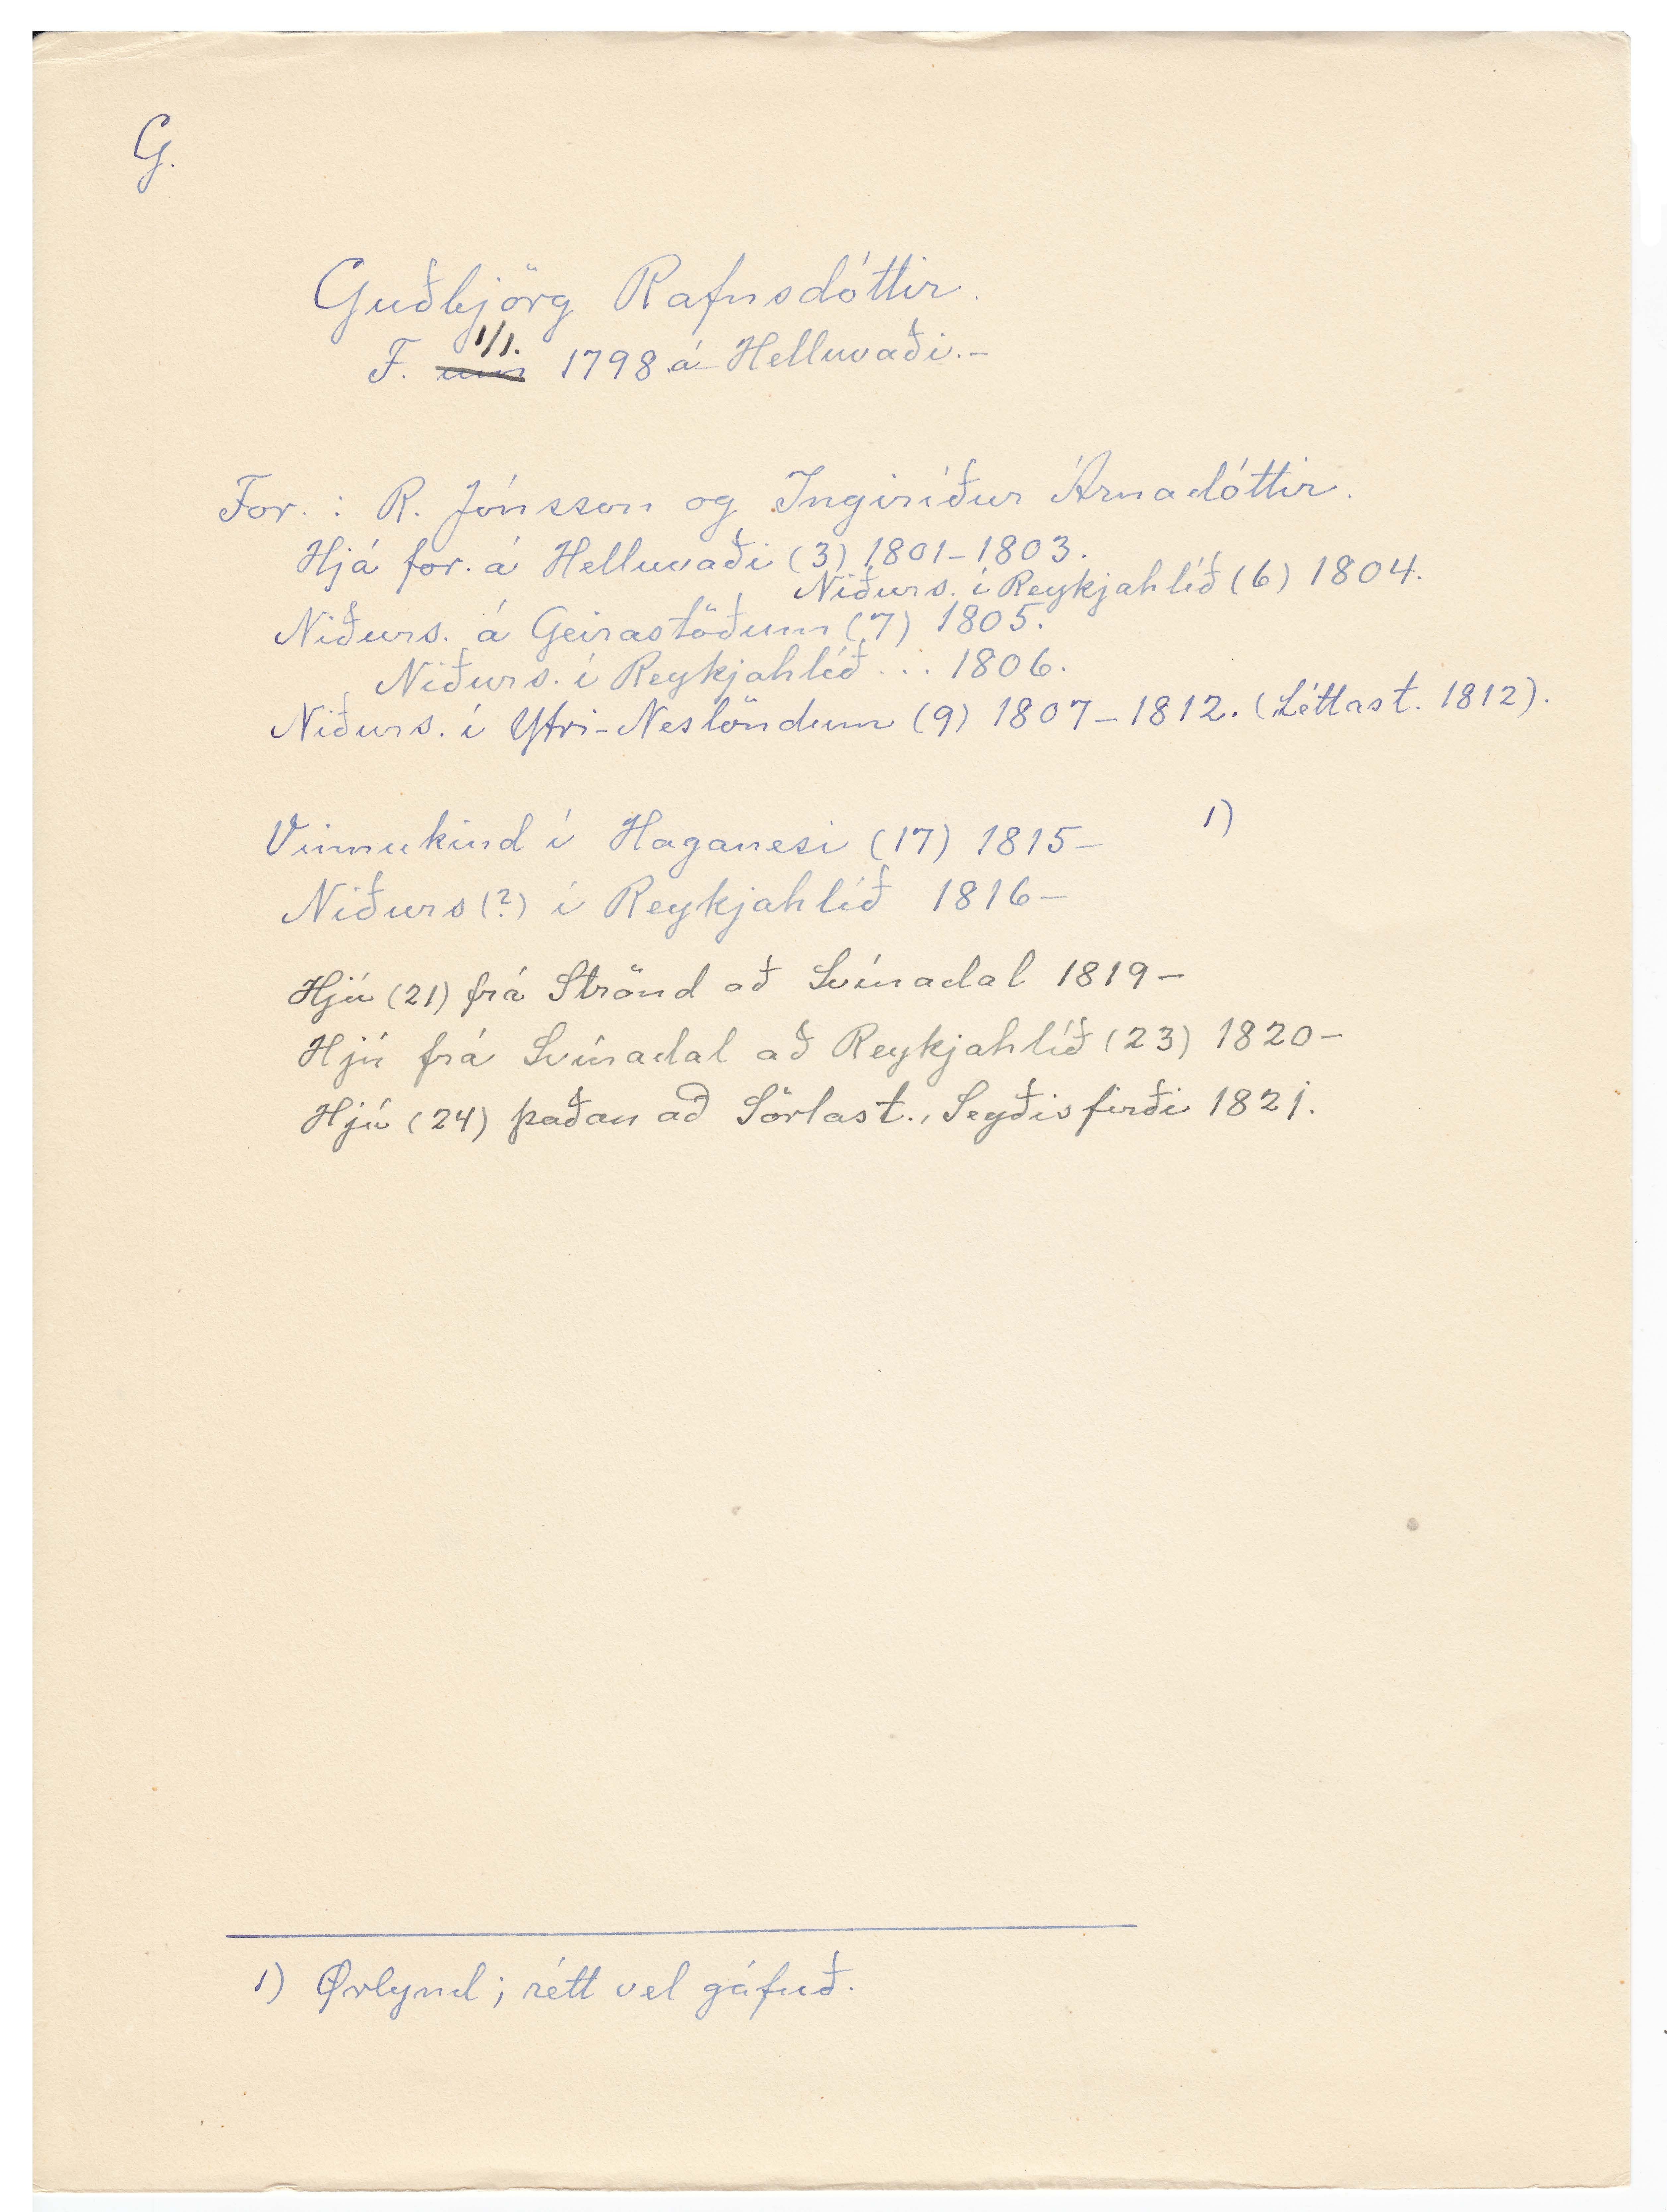 G.
Guðbjörg Rafnsdóttir.
F. 1/1. 1798 á Helluvaði.-
For. : R. Jónsson og Ingiríður Árnadóttir.
Hjá for. á Helluvaði (3) 1801-1803.
Niðurs. í Reykjahlíð (6) 1804.
Niðurs. á Geirastöðum (7) 1805.
Niðurs. í Reykjahlíð ... 1806.
Niðurs. í Ytri-Neslöndum (9) 1807-1812. (Léttast. 1812).
Vinnukind í Haganesi (17) 1815- 1)
Niðurs(?) í Reykjahlíð 1816-
Hjú (21) frá Strönd að Svínadal 1819-
Hjú frá Svínadal að Reykjahlíð (23) 1820-
Hjú (24) þaðan að Sörlast., Seyðisfirði 1821.
1) Ørlynd; rétt vel gáfuð.